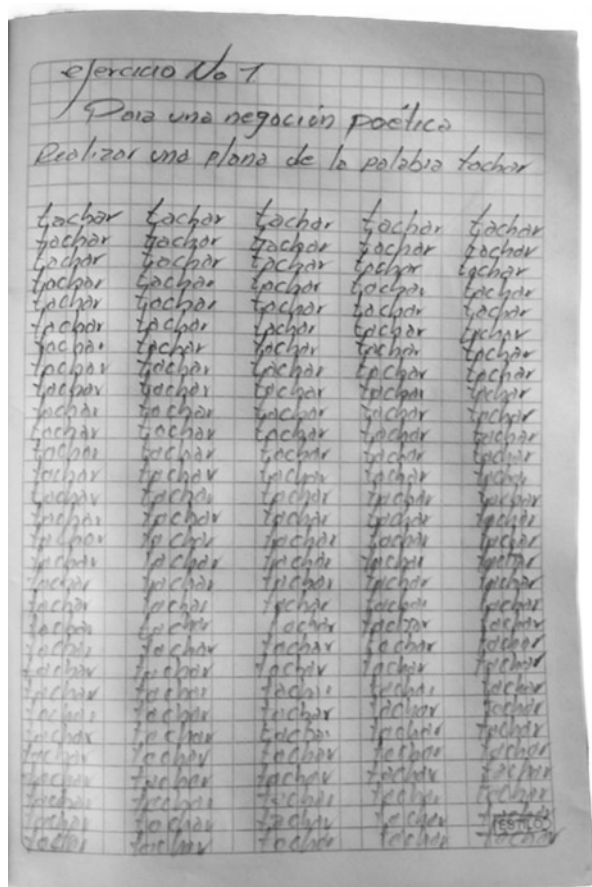 ejercicio No 1
Para una negación poética
Realizar una plana de la palabra tachar
tachar tachar tachar tachar tachar
tachar tachar tachar tachar tachar
tachar tachar tachar tachar tachar
tachar tachar tachar tachar tachar
tachar tachar tachar tachar tachar
tachar tachar tachar tachar tachar
tachar tachar tachar tachar tachar
tachar tachar tachar tachar tachar
tachar tachar tachar tachar tachar
tachar tachar tachar tachar tachar
tachar tachar tachar tachar tachar
tachar tachar tachar tachar tachar
tachar tachar tachar tachar tachar
tachar tachar tachar tachar tachar
tachar tachar tachar tachar tachar
tachar tachar tachar tachar tachar
tachar tachar tachar tachar tachar
tachar tachar tachar tachar tachar
tachar tachar tachar tachar tachar
tachar tachar tachar tachar tachar
tachar tachar tachar tachar tachar
tachar tachar tachar tachar tachar
tachar tachar tachar tachar tachar
tachar tachar tachar tachar tachar
tachar tachar tachar tachar tachar
tachar tachar tachar tachar tachar
tachar tachar tachar tachar tachar
tachar tachar tachar tachar tachar
tachar tachar tachar tachar tachar
ESTILO
tachar tachar tachar tachar tachar